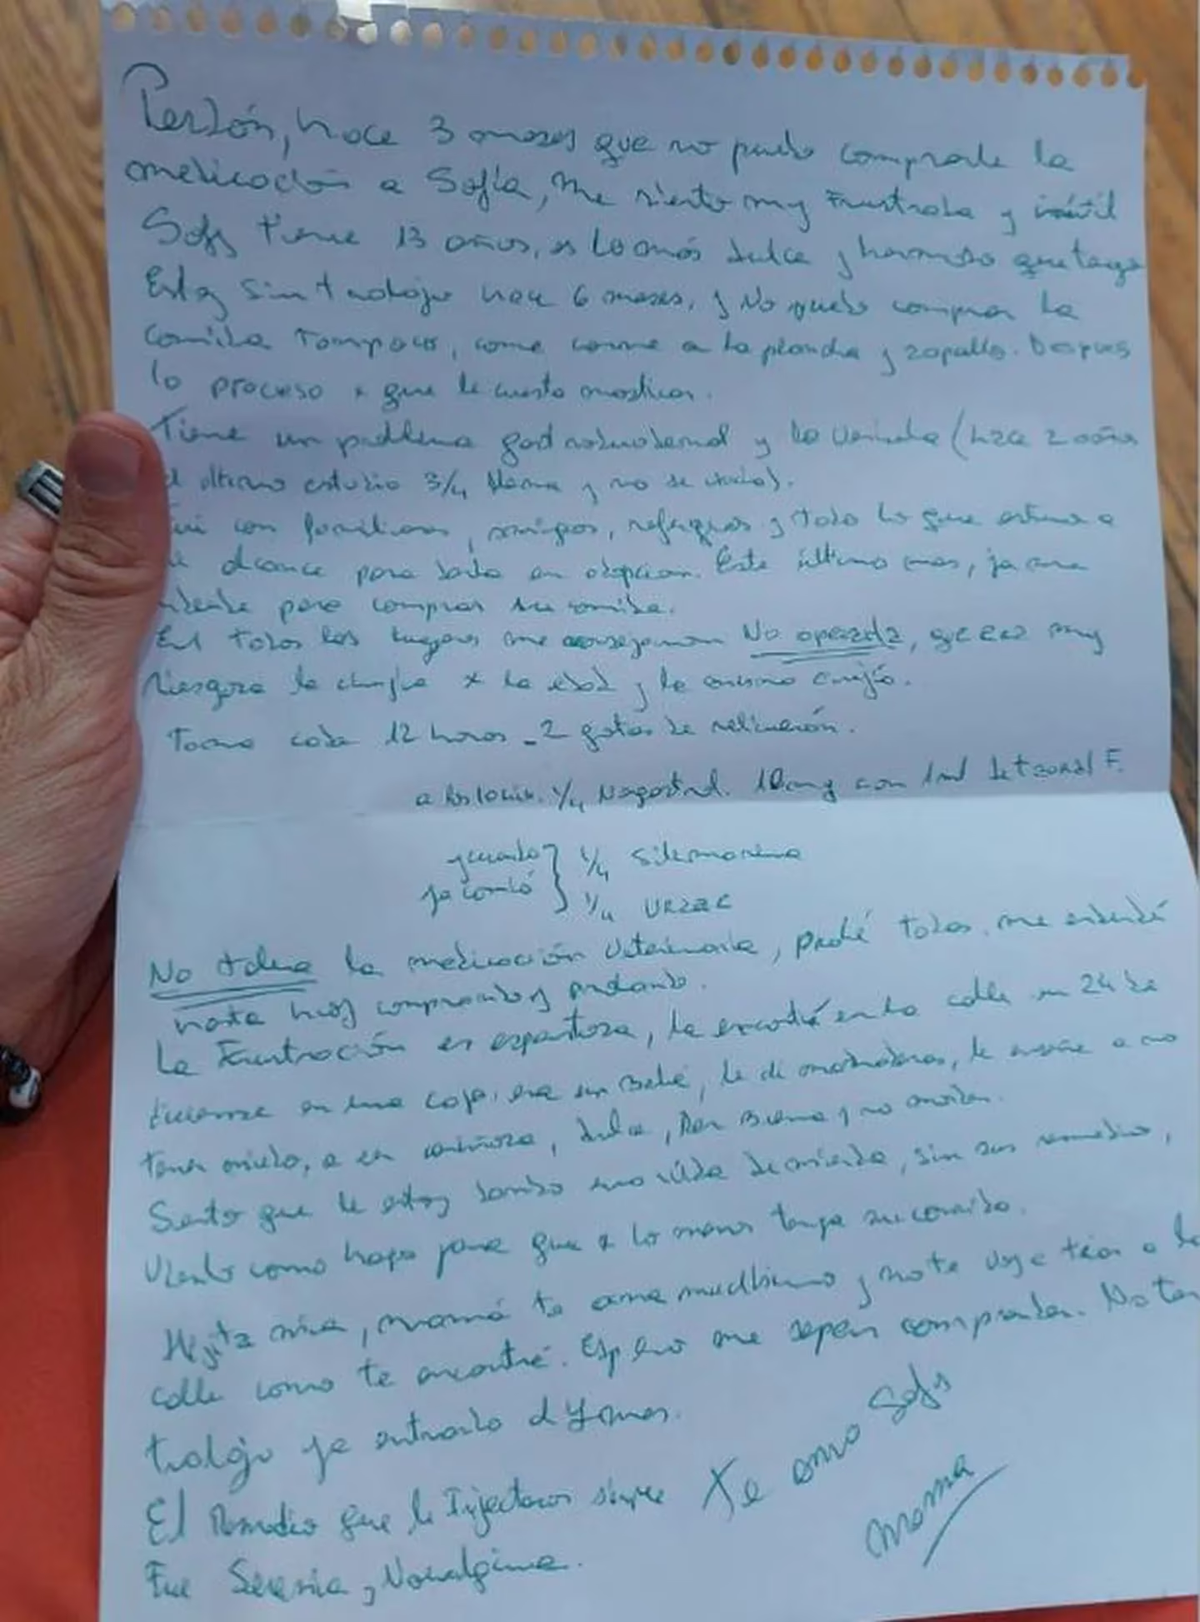 Perdón, hace 3 meses que no puedo comprarle la
medicación a Sofía, me siento muy Frustrada y inútil
Sofy tiene 13 años, es lo más dulce y hermoso que tengo
Estoy sin trabajo hace 6 meses, y No puedo comprar la
comida Tampoco, come carne a la plancha y zapallo. Después
lo proceso x que le cuesta masticar.
Tiene un problema y la (hace 2 años
último estudio 3/4 llena y no se).
con familiares, amigos, refugios y todo lo que estuvo a
alcance para darla en adopción. Este último mes, ya me
para comprar su comida.
En todos los lugares me aconsejaron No operarla, que era muy
riesgosa la cirugía x la edad y la misma cirugía.
Toma cada 12 horas - 2 gotas de reliverán.
1/4 10mg con 1ml de F.
y cuando } 1/4 Silimarina
ya comió } 1/4 Urzac
No tolera la medicación Veterinaria, probé todas, me
hasta hoy comprando y probando.
La Frustración es espantosa, la encontré en la calle un 24 de
Diciembre en una caja, era un Bebé, le di mamaderas, le enseñé a no
tener miedo, a ser cariñosa, dulce, Ser Buena y no morder.
Siento que le estoy dando una vida de mierda, sin sus remedios,
Viendo como hago para que x lo menos tenga su comida.
Hijita mía, mamá te ama muchísimo y no te voy a tirar a la
calle como te encontré. Espero me sepan comprender. No ten
trabajo ya entrando
El Remedio que le Inyectaron siempre Te amo Sofy
Fue y Novalgina. mamá